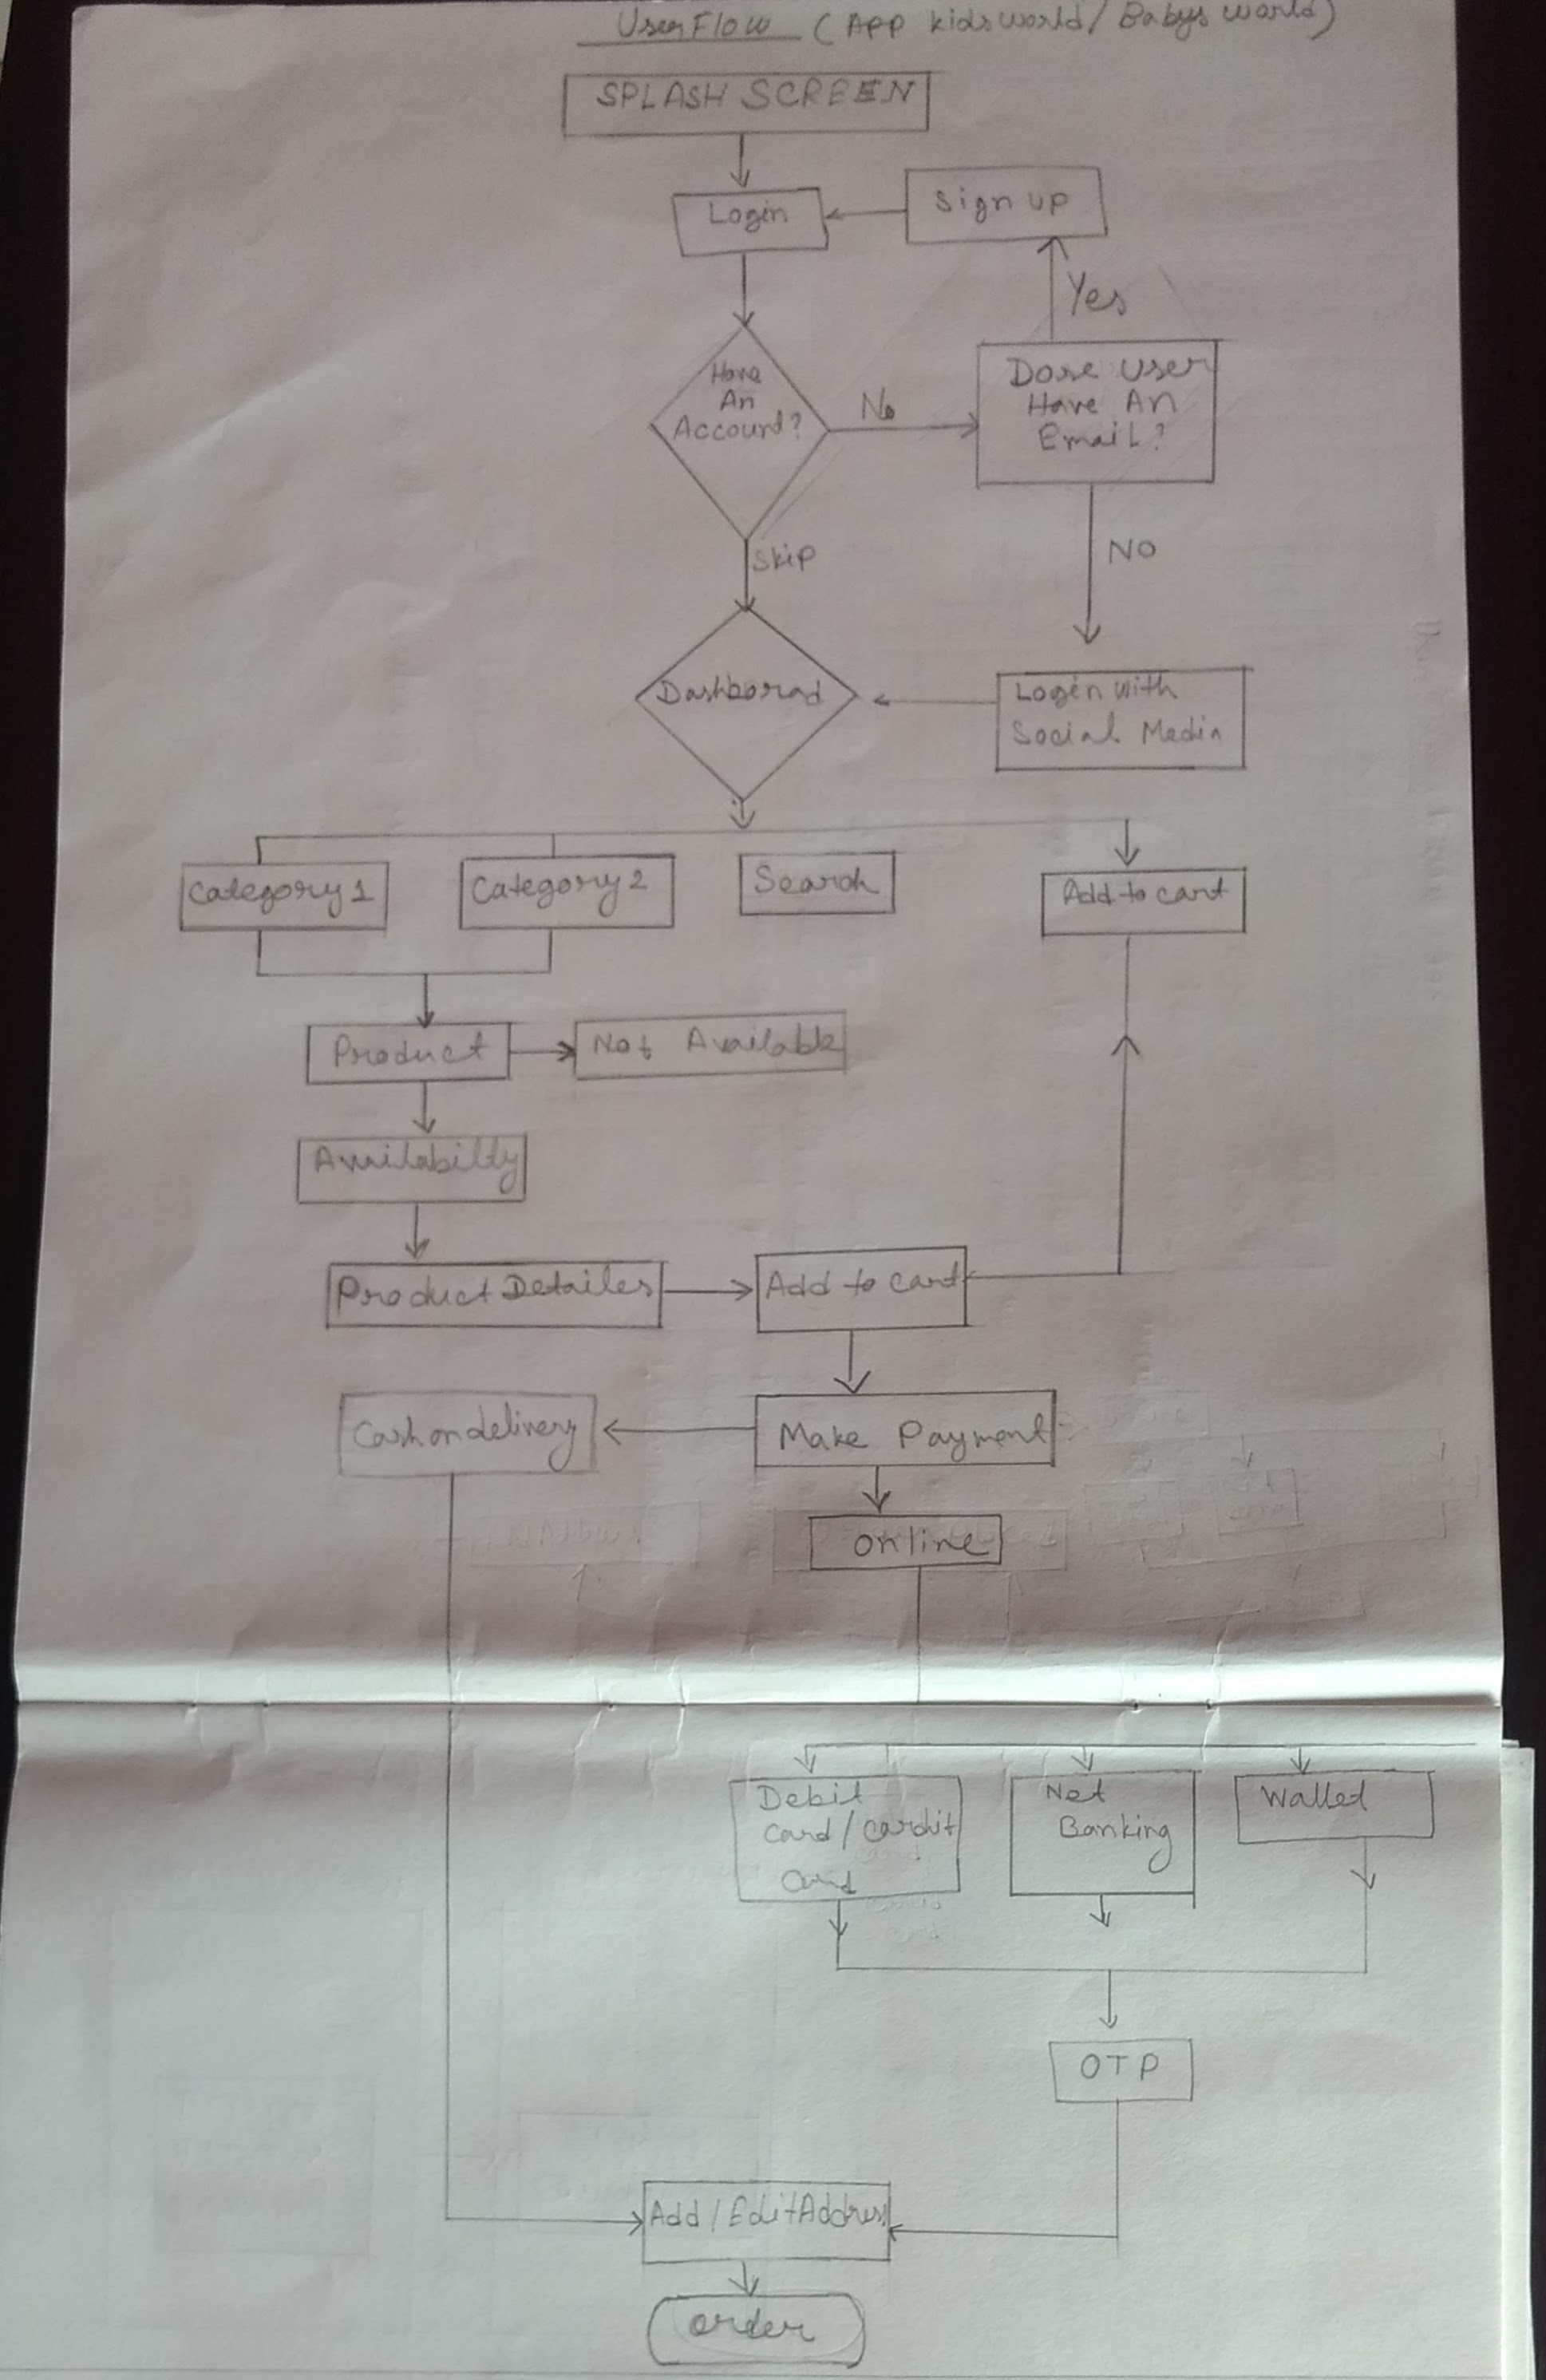 UserFlow (App kidsworld/Babys world)
SPLASH SCREEN
Login
Sign up
Yes
Have
An
Account?
No
Dose User
Have An
Email?
Skip
NO
Dashborad
Login with
Social Media
Category 1
Category 2
Search
Add to cart
Product
Not Available
Availabilty
Product Detailes
Add to cart
Cash on delivery
Make Payment
online
Debit
card/cardit
Card
Net
Banking
Wallet
OTP
Add/Edit Address
order